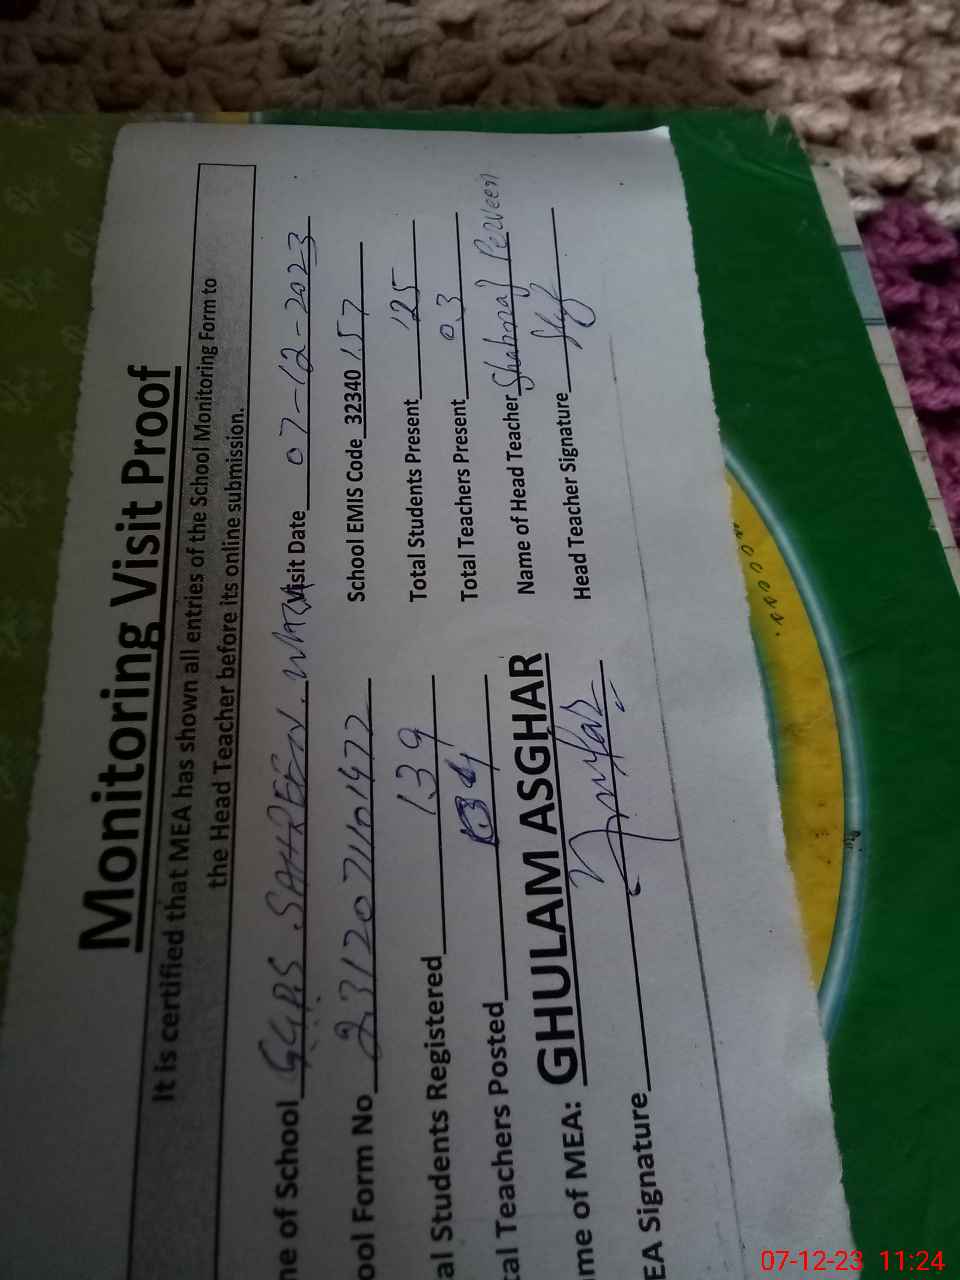 Monitoring Visit Proof
It is certified that MEA has shown all entries of the School Monitoring Form to
the Head Teacher before its online submission.
ne of School GGPS. SAHREEN. Visit Date 07-12-2023
ool Form No 2312071101477 School EMIS Code 32340157
al Students Registered 139 Total Students Present 125
tal Teachers Posted 04 Total Teachers Present 03
me of MEA: GHULAM ASGHAR Name of Head Teacher Shahnaz Perveen
EA Signature Head Teacher Signature
07-12-23 11:24